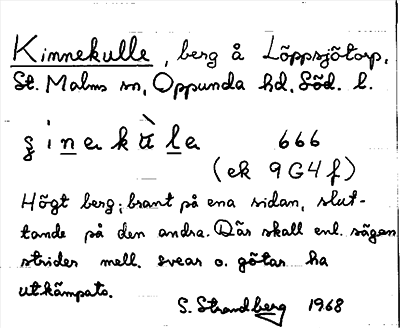 Kinnekulle, berg å Löppsjötorp,
St. Malms sn, Oppunda hd, Söd. l.
ʂ i n e k ù̈ l e 666
(ek 9G4f)
Högt berg; brant på ena sidan, slut-
tande på den andra. Där skall enl. sägen
strider mell. svear o. götar ha
utkämpats.
S. Strandberg 1968